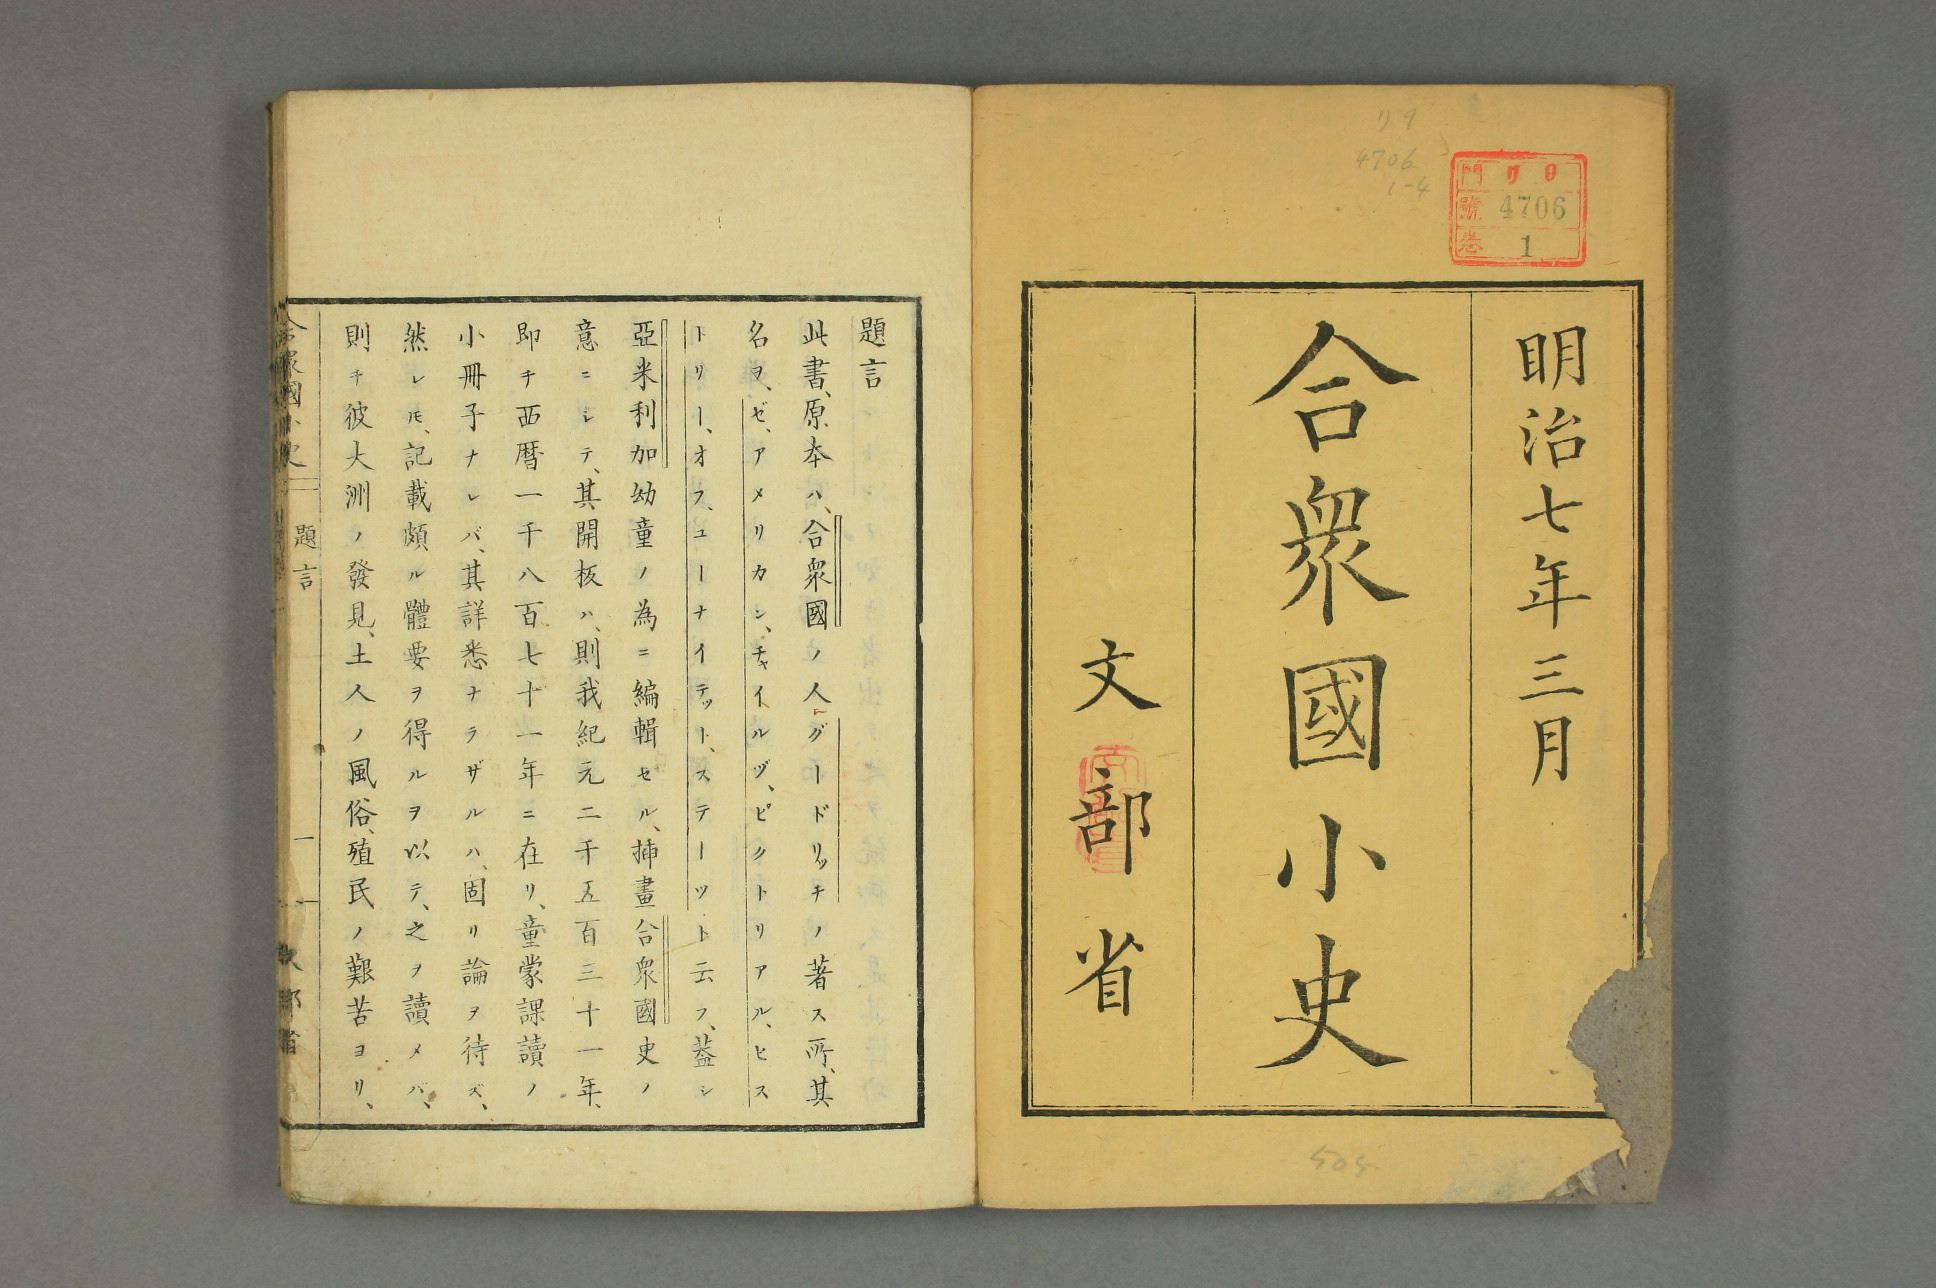 リ9
4706
1-4
門 リ 9
號 4706
卷 1
明治七年三月
合衆國小史
文部省
505
題言
此書、原本ハ、合衆國ノ人グードリッチノ著ス所、其
名ヲ、ゼ、アメリカン、チャイルヅ、ピクトリアル、ヒス
トリー、オフ、ユーナイテット、ステーツト云フ、蓋シ
亞米利加幼童ノ為ニ編輯セル、挿畫合衆國史ノ
意ニシテ、其開板ハ、則我紀元二千五百三十一年、
即チ西暦一千八百七十一年ニ在リ、童蒙課讀ノ
小冊子ナレバ、其詳悉ナラザルハ、固リ論ヲ待ズ、
然レ𪜈、記載頗ル體要ヲ得ルヲ以テ、之ヲ讀メバ、
則チ彼大洲ノ發見、土人ノ風俗、殖民ノ艱苦ヨリ、
合衆國小史
題言
一
文部省